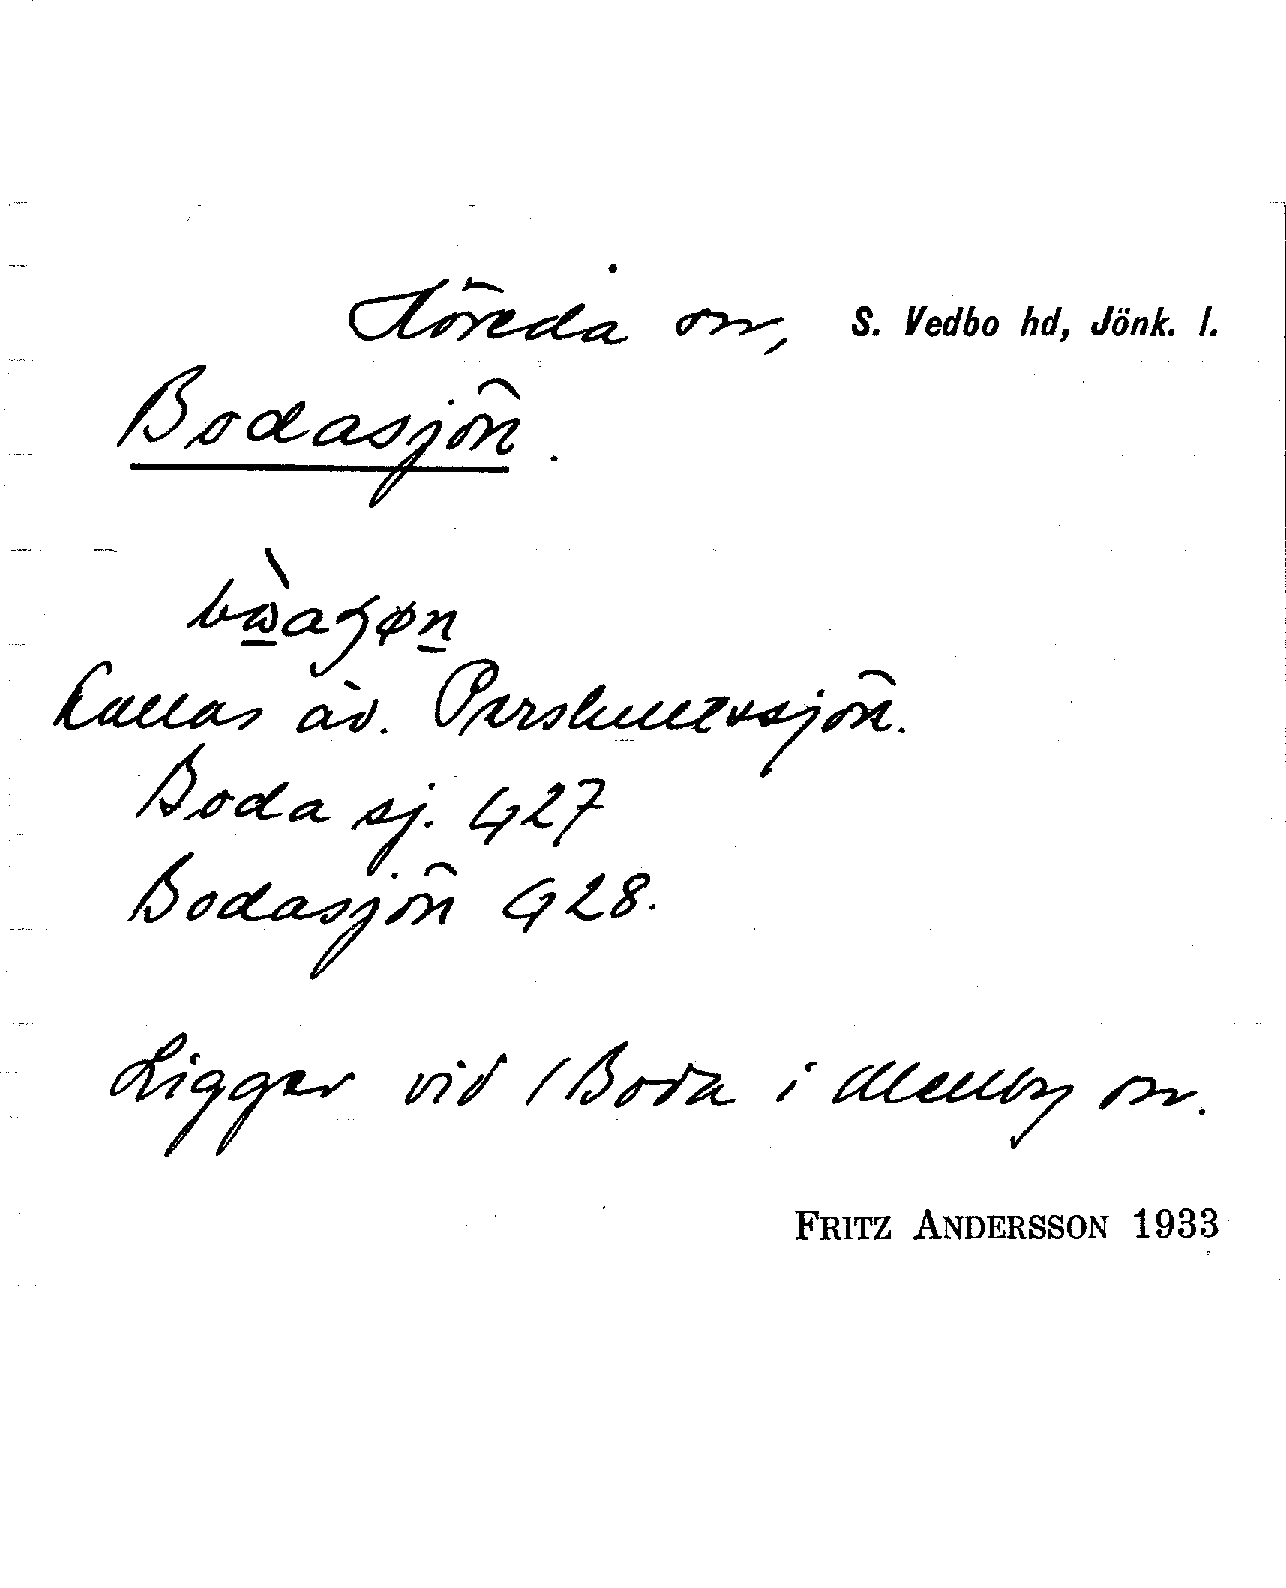 Höreda sn, S. Vedbo hd, Jönk. l.
Bodasjön.
Kallas äv. Pershultssjön.
Boda sj. G27
Bodasjön G28.
Ligger vid / Boda i Mellby sn.
FRITZ ANDERSSON 1933